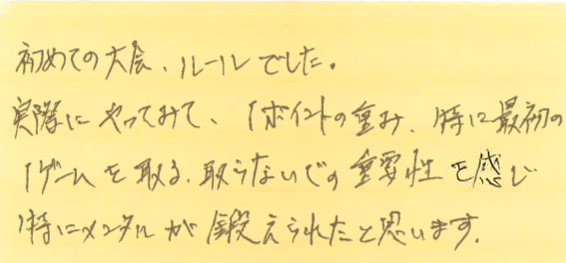 初めての大会、ルールでした。
実際にやってみて、1ポイントの重み、特に最初の
1ゲームを取る、取らないでの重要性を感じ
特にメンタルが鍛えられたと思います。